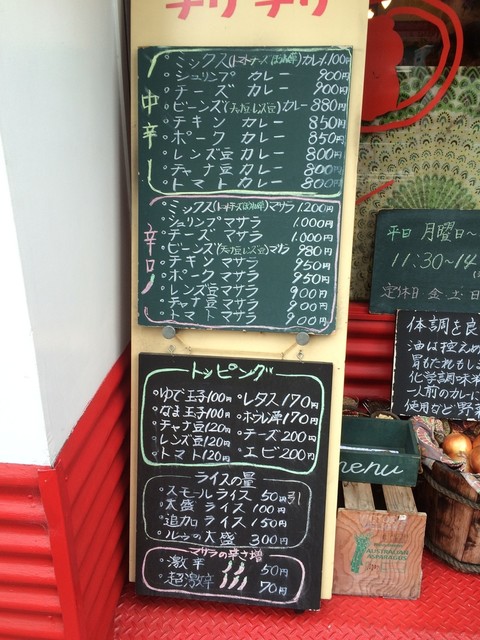 チリチリ
中辛
ミックス(トマトチーズほうれん草)カレー 1,100円
シュリンプ カレー 900円
チーズ カレー 900円
ビーンズ(チャナ豆レンズ豆)カレー 880円
チキン カレー 850円
ポーク カレー 850円
レンズ豆 カレー 800円
チャナ豆 カレー 800円
トマト カレー 800円
辛口
ミックス(トマトチーズほうれん草)マサラ 1,200円
シュリンプ マサラ 1,000円
チーズ マサラ 1,000円
ビーンズ(チャナ豆レンズ豆)マサラ 980円
チキン マサラ 950円
ポーク マサラ 950円
レンズ豆 マサラ 900円
チャナ豆 マサラ 900円
トマト マサラ 900円
トッピング
ゆで玉子100円
なま玉子100円
チャナ豆120円
レンズ豆120円
トマト120円
レタス170円
ホウレン草170円
チーズ200円
エビ200円
ライスの量
スモールライス 50円引
大盛ライス 100円
追加ライス 150円
ルーの大盛 300円
マサラの辛さ増
激辛 50円
超激辛 70円
平日 月曜日〜
11:30〜14
定休日 金土日
体調を良
油は控えめ
胃もたれもし
化学調味料
一人前のカレーに
使用など野菜
menu
AUSTRALIAN
ASPARAGUS